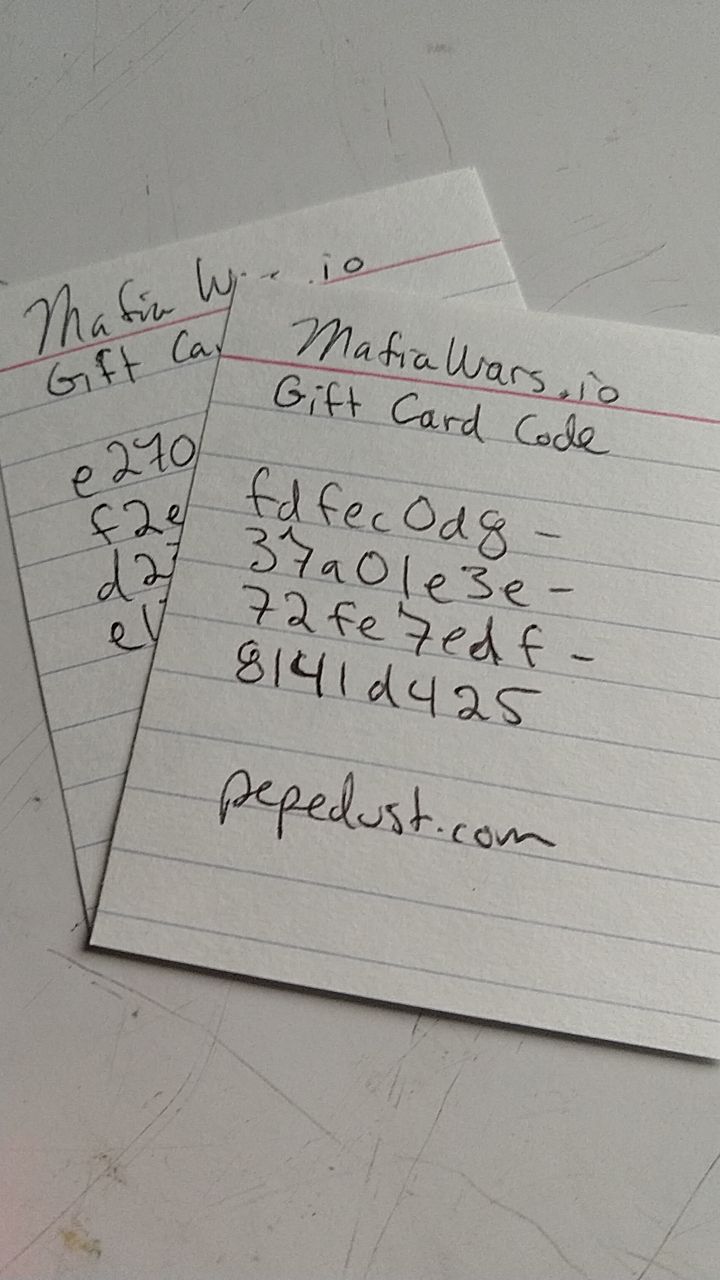 Mafia W
.io
Gift Ca
e270
f2e
d2
el
MafiaWars.io
Gift Card Code
fdfec0d8-
37a01e3e-
72fe7edf-
8141d425
pepedust.com